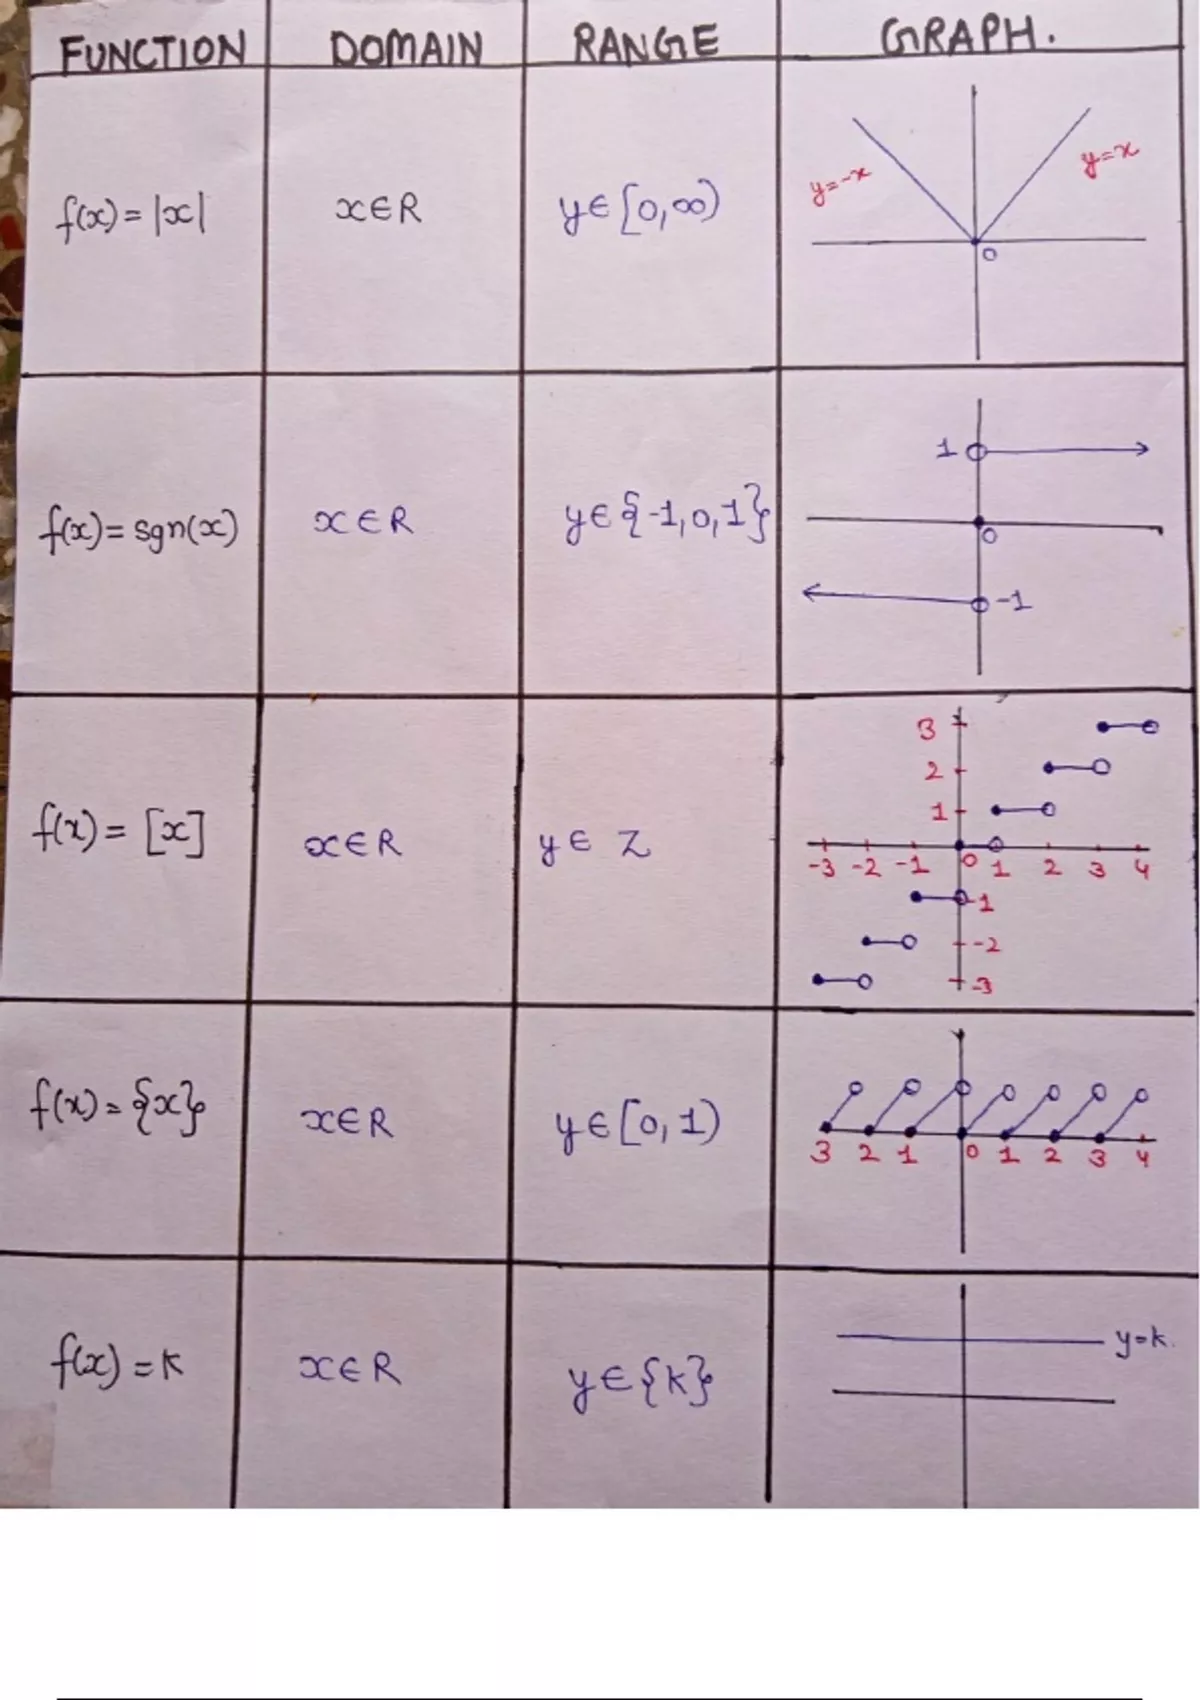 FUNCTION DOMAIN RANGE GRAPH.
f(x) = |x| x∈R y∈[0,∞) y=-x y=x
0
f(x) = sgn(x) x∈R y∈{-1,0,1} 1
0
-1
f(x) = [x] x∈R y∈ Z 3
2
1
-3 -2 -1 0 1 2 3 4
-1
-2
-3
f(x) = {x} x∈R y∈[0,1)
3 2 1 0 1 2 3 4
f(x) = k x∈R y∈{k} y=k.